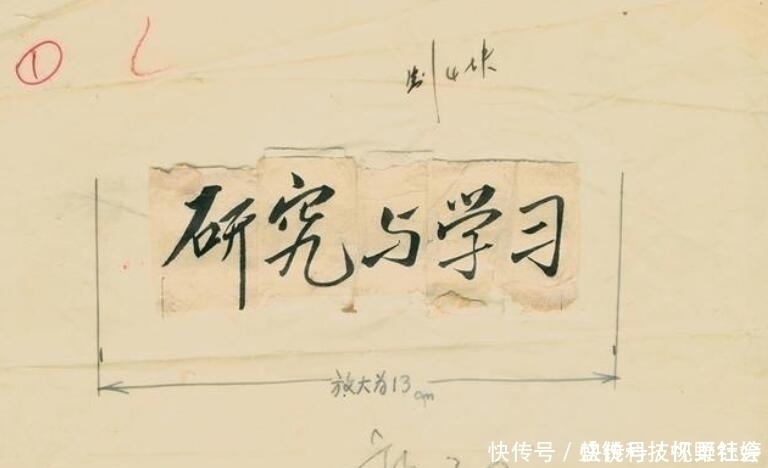 ①
制4块
研究与学习
放大为13cm
快传号／